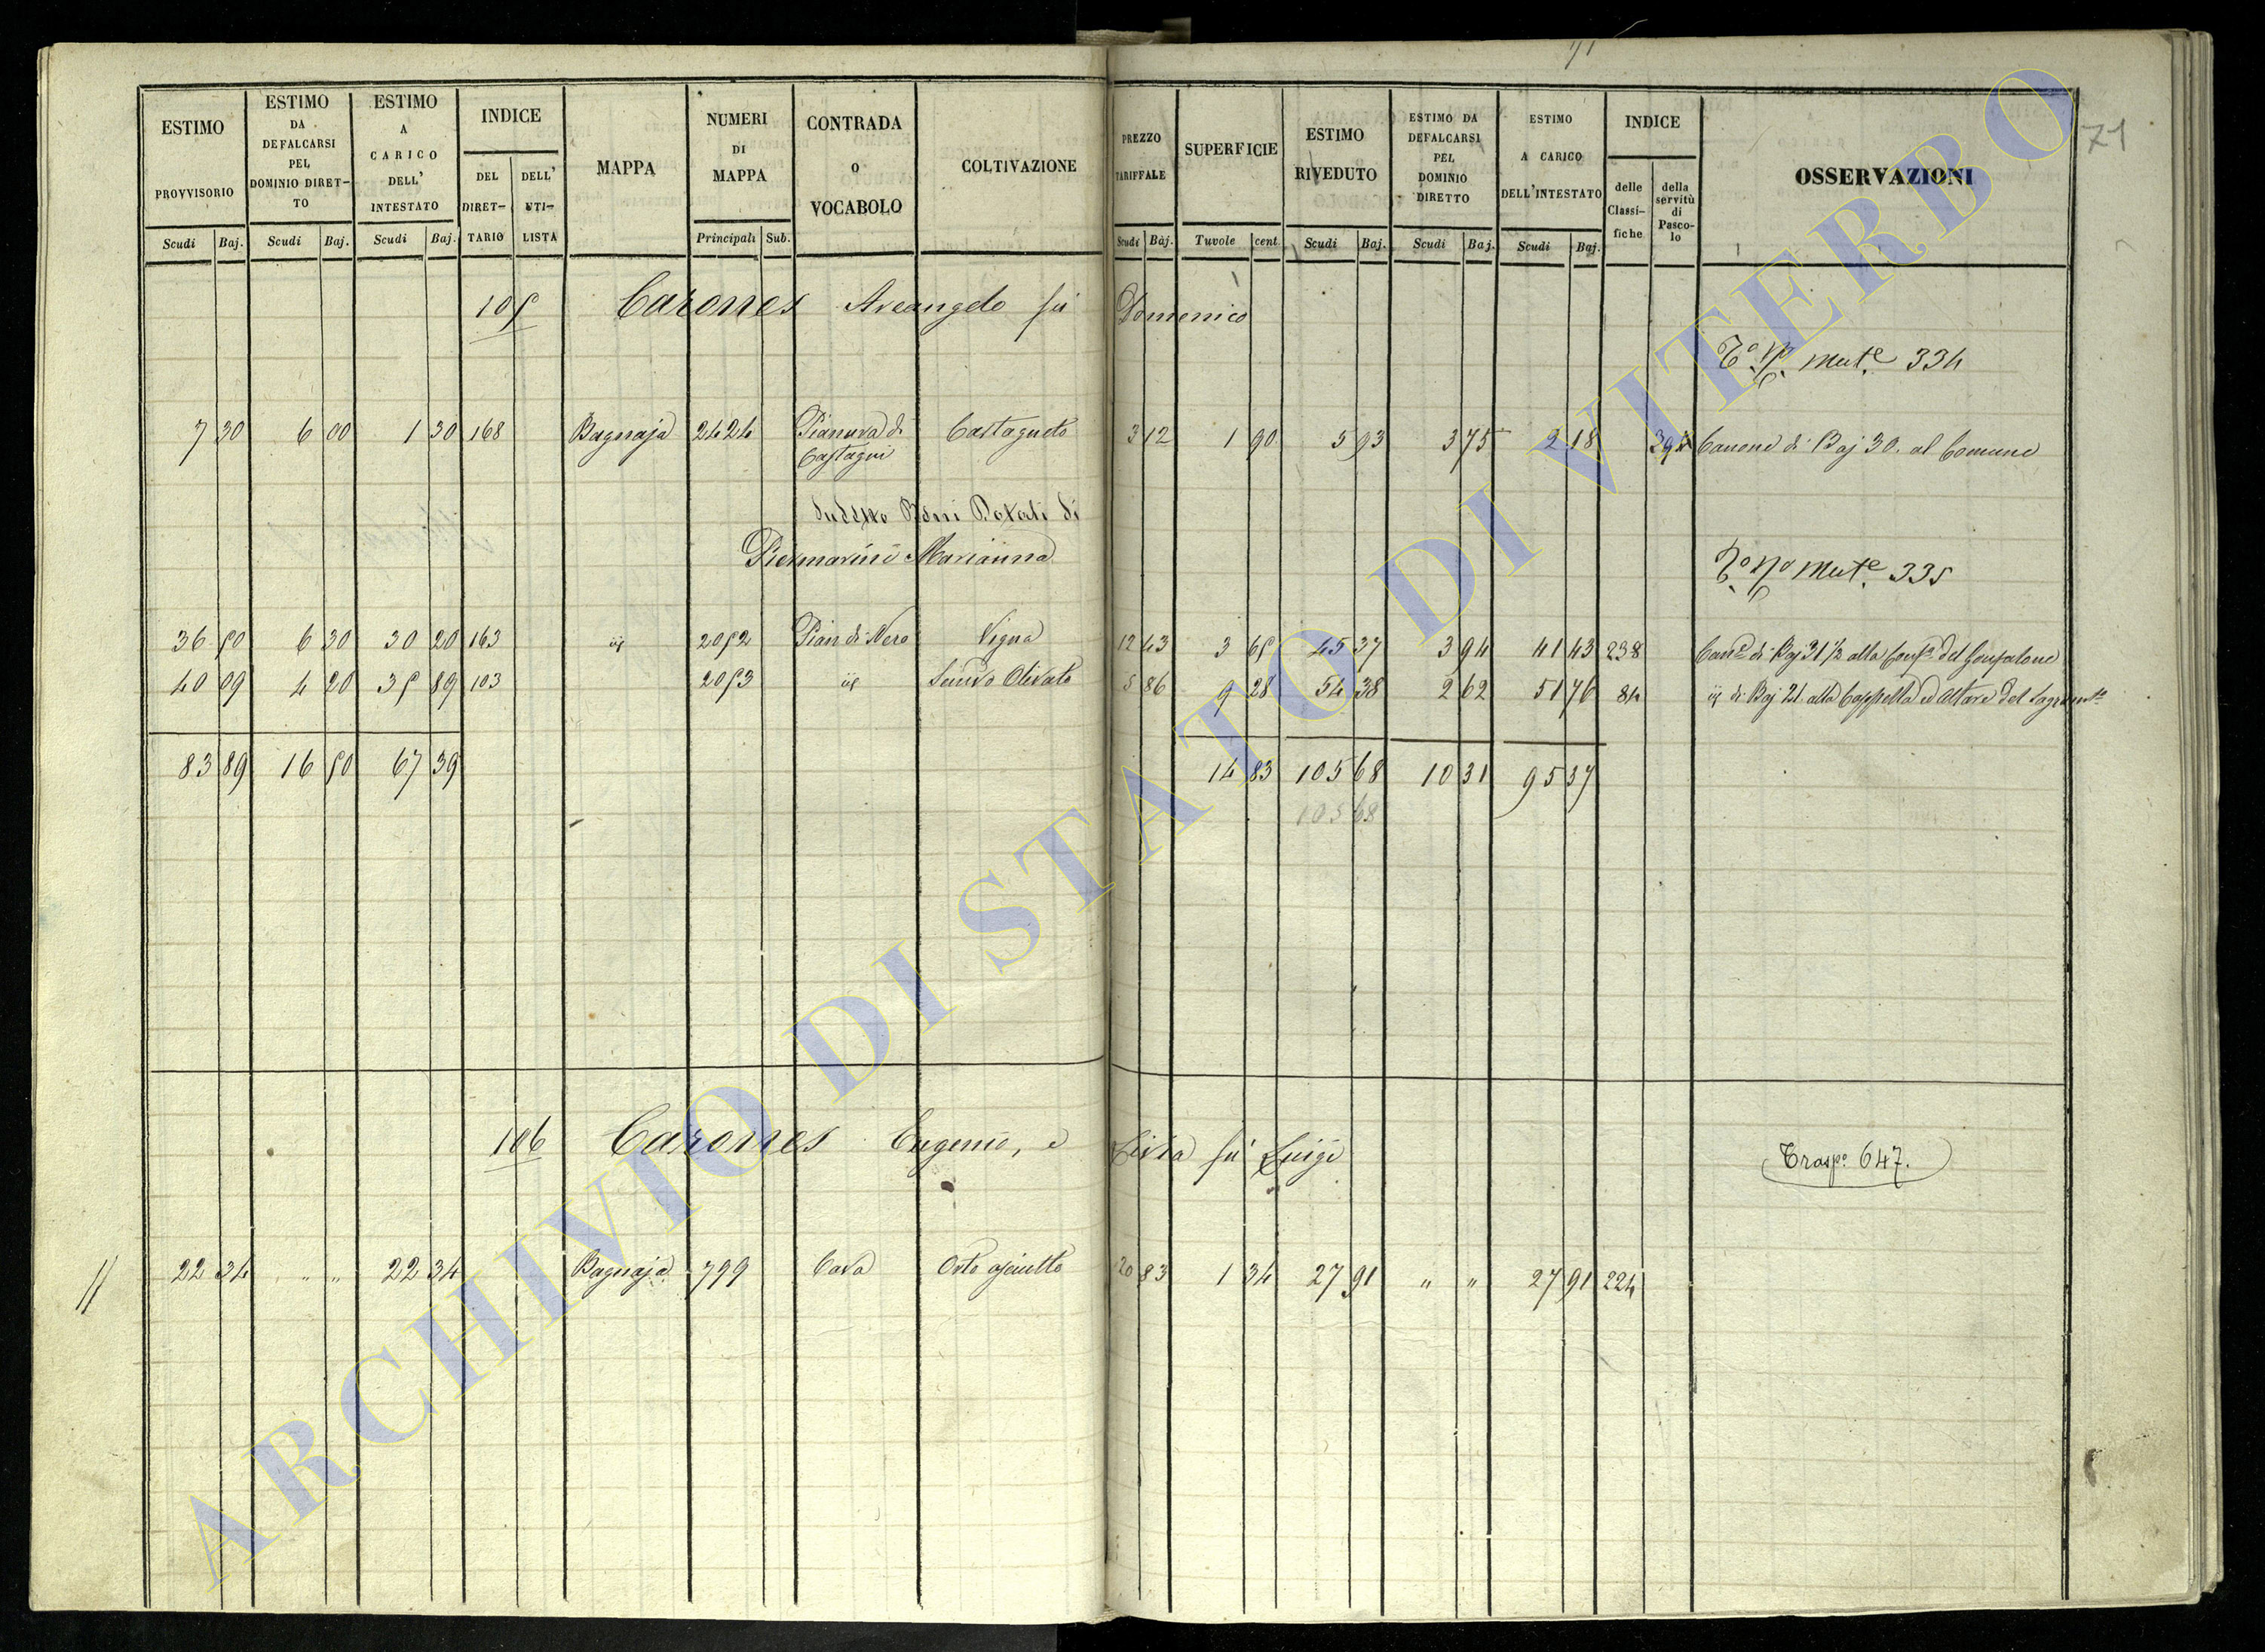 71
71
ESTIMO PROVVISORIO | ESTIMO DA DEFALCARSI PEL DOMINIO DIRET-TO | ESTIMO A CARICO DELL' INTESTATO | INDICE DEL DIRET-TARIO | DELL' UTI-LISTA | MAPPA | NUMERI DI MAPPA | CONTRADA O VOCABOLO | COLTIVAZIONE | PREZZO TARIFFALE | SUPERFICIE | ESTIMO RIVEDUTO | ESTIMO DA DEFALCARSI PEL DOMINIO DIRETTO | ESTIMO A CARICO DELL'INTESTATO | INDICE delle Classi-fiche | della servitù di Pasco-lo | OSSERVAZIONI
Scudi Baj. Scudi Baj. Scudi Baj. Principali Sub. Scudi Baj. Tavole cent. Scudi Baj. Scudi Baj. Scudi Baj.
105 Carones Arcangelo fu Domenico
Mut.e 334
7 30 6 00 1 30 168 Bagnaja 2424 Pianura di Castagni Castagneto 3 12 1 90 5 93 3 75 2 18 Canone di Baj 30. al Comune
Sudetto Beni Dotali di
Piermarini Marianna
Mut.e 335
36 50 6 30 30 20 163 id 2052 Pian di Nero Vigna 12 43 3 65 45 37 3 94 41 43 238 Can.e di Baj 31 1/2 alla Conf.a del Gonfalone
40 09 4 20 35 89 103 2053 id Semvo Olivato 5 86 9 28 54 38 2 62 51 76 84 id di Baj 21 alla Cappella ed Altare del Sagram.to
83 89 16 50 67 39 14 83 105 68 10 31 95 37
105 68
106 Carones Eugenio, e Livia fu Luigi
Trasp.o 647.
22 34 " " 22 34 Bagnaja 799 Cava Orto asciutto 20 83 1 34 27 91 " " 27 91 224
ARCHIVIO DI STATO DI VITERBO